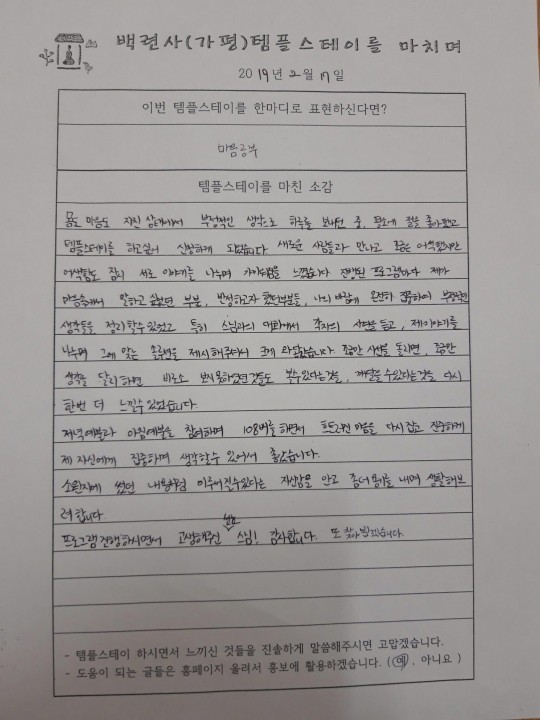 백련사(가평)템플스테이를 마치며
2019년 2월 17일
이번 템플스테이를 한마디로 표현하신다면?
마음공부
템플스테이를 마친 소감
몸도 마음도 지친 상태에서 부정적인 생각으로 하루를 보내던 중, 평소에 절을 좋아했고
템플스테이를 하고싶어 신청하게 되었습니다. 새로운 사람들과 만나고 조금은 어색했지만
어색함도 잠시 서로 이야기를 나누며 가까워짐을 느꼈습니다. 진행된 프로그램마다 제가
마음속에서 말하고 싶었던 부분, 반성하고자 했던부분들, 나의 바람에 온전히 집중하여 부정적인
생각들을 정리할수있었고 특히 스님과의 대화에서 각자의 사연을 듣고, 제이야기를
나누며 그에 맞는 솔루션을 제시해주셔서 크게 와닿았습니다. 조금만 시선을 돌리면, 조금만
생각을 달리하면 비로소 보지못하였던것들도 볼수있다는것을, 깨달을수있다는것을 다시
한번 더 느낄수있었습니다.
저녁예불과 아침예불을 참여하며 108배를 하면서 흐트러진 마음을 다시잡고 진중하게
제 자신에게 집중하며 생각할수 있어서 좋았습니다.
소원지에 썼던 내용처럼 이루어질수있다는 자신감을 안고 좀더 용기를 내며 생활해보
려 합니다.
프로그램 진행하시면서 고생해주신 스님! 감사합니다. 또 찾아뵙겠습니다.
- 템플스테이 하시면서 느끼신 것들을 진솔하게 말씀해주시면 고맙겠습니다.
- 도움이 되는 글들은 홈페이지 올려서 홍보에 활용하겠습니다. (예, 아니요)